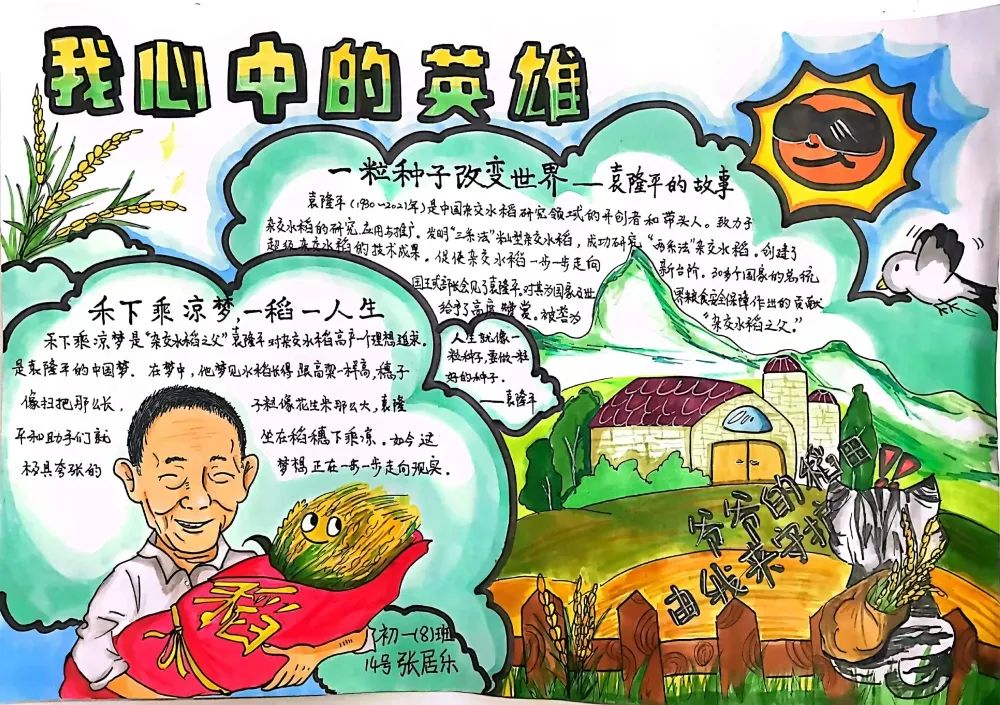 我心中的英雄
一粒种子改变世界——袁隆平的故事
袁隆平(1930~2021年)是中国杂交水稻研究领域的开创者和带头人。致力于
杂交水稻的研究、应用与推广。发明"三系法"籼型杂交水稻,成功研究"两系法"杂交水稻。创建了
超级杂交水稻的技术成果。促使杂交水稻一步一步走向
新台阶。30多个国家的总统
国王或部长会见了袁隆平,对其为国家及世
界粮食安全保障作出的贡献
给予了高度赞赏。被誉为
"杂交水稻之父。"
禾下乘凉梦,一稻一人生
禾下乘凉梦是"杂交水稻之父"袁隆平对杂交水稻高产一个理想追求。
是袁隆平的中国梦。在梦中,他梦见水稻长得跟高粱一样高,穗子
像扫把那么长, 子粒像花生米那么大,袁隆
平和助手们就 坐在稻穗下乘凉。如今这
极具夸张的 梦想正在一步一步走向现实。
人生就像一
粒种子,要做一粒
好的种子。
——袁隆平
爷爷的稻田
由我来守护
稻
初一(8)班
14号 张居乐